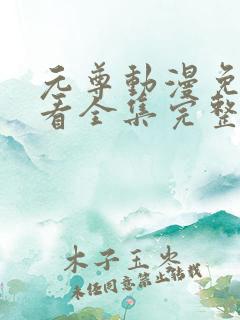 元尊動漫免
看全集完整
木子玉炎
未经同意禁止转载